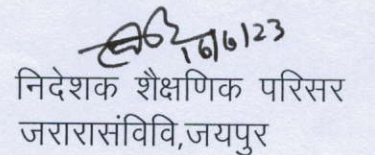 16/6/23
निदेशक शैक्षणिक परिसर
जरारासंविवि,जयपुर